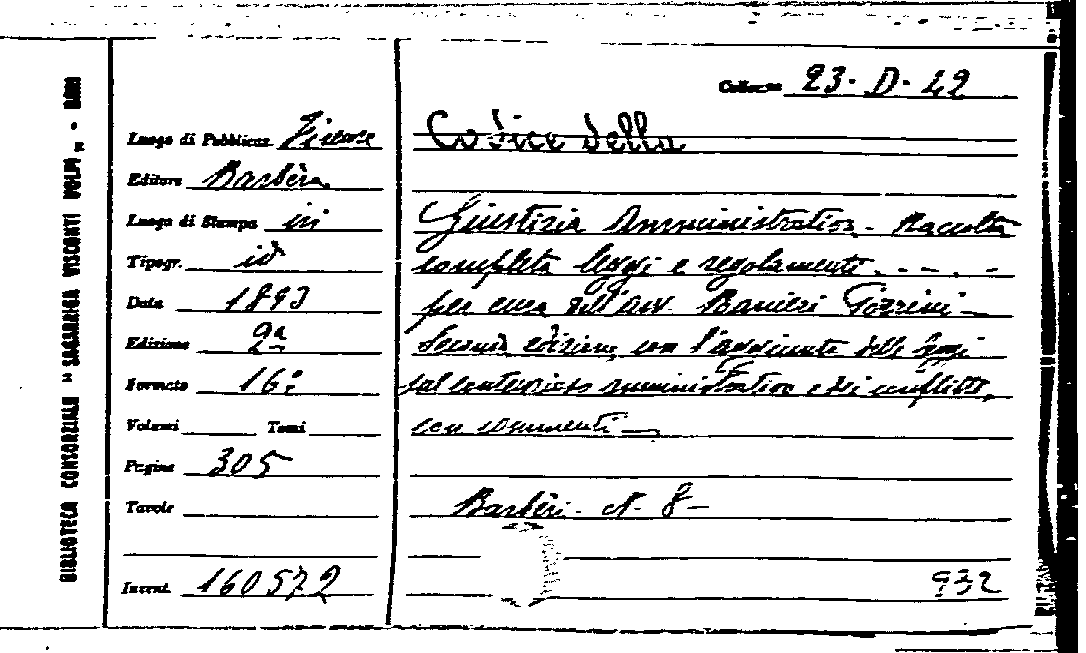 BIBLIOTECA CONSORZIALE "SAGARRIGA VISCONTI VOLPI" - BARI
Colloc.ne 23 - D - 42
Luogo di Pubblicaz. Firenze
Editore Barbèra
Luogo di Stampa ivi
Tipogr. id
Data 1893
Edizione 2ª
Formato 16º
Volumi Tomi
Pagine 305
Tavole
Invent. 160572
Codice della
Giustizia Amministrativa - Raccolta
completa leggi e regolamenti . - - . -
per cura dell'avv. Ranieri Gozzini -
Seconda edizione, con l'aggiunta delle leggi
sul contenzioso amministrativo e dei conflitti,
con commenti -
Barbèri - N. 8 -
932